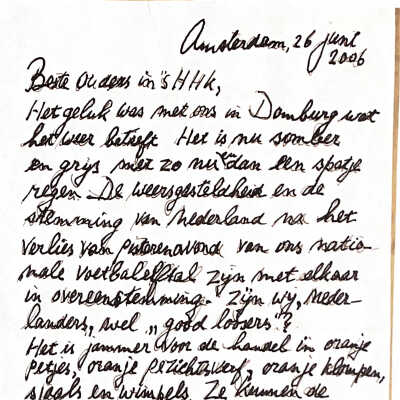 Amsterdam, 26 juni
2006
Beste Ouders in 's HHK,
Het geluk was met ons in Domburg wat
het weer betreft. Het is nu somber
en grijs met zo nu en dan een spatje
regen. De weersgesteldheid en de
stemming van Nederland na het
verlies van gisterenavond van ons natio-
nale voetbalelftal zijn met elkaar
in overeenstemming. Zijn wij, Neder-
landers, wel „good loosers"?
Het is jammer voor de handel in oranje
petjes, oranje gezichtsverf, oranje klompen,
sjaals en wimpels. Ze kunnen de